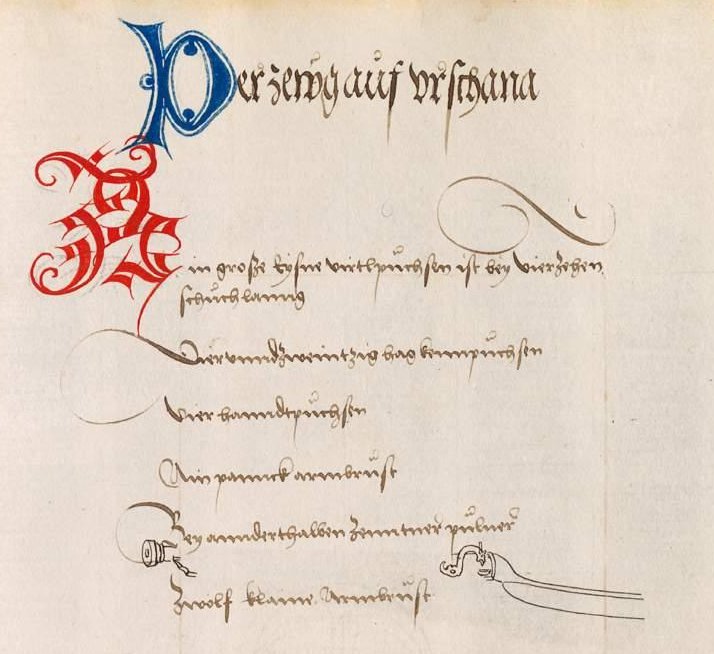 Der zewg auf vrschana
Ain große Eysne virtlpüchsen ist bey vierzehen
schüch lanng
Vier vnnd zweintzig hagkennpüchsen
Vier hanndtpüchsen
Ain pannck armbrüst
Bey annderthalben zenntner pulner
Zwölf klaine Armbrüst